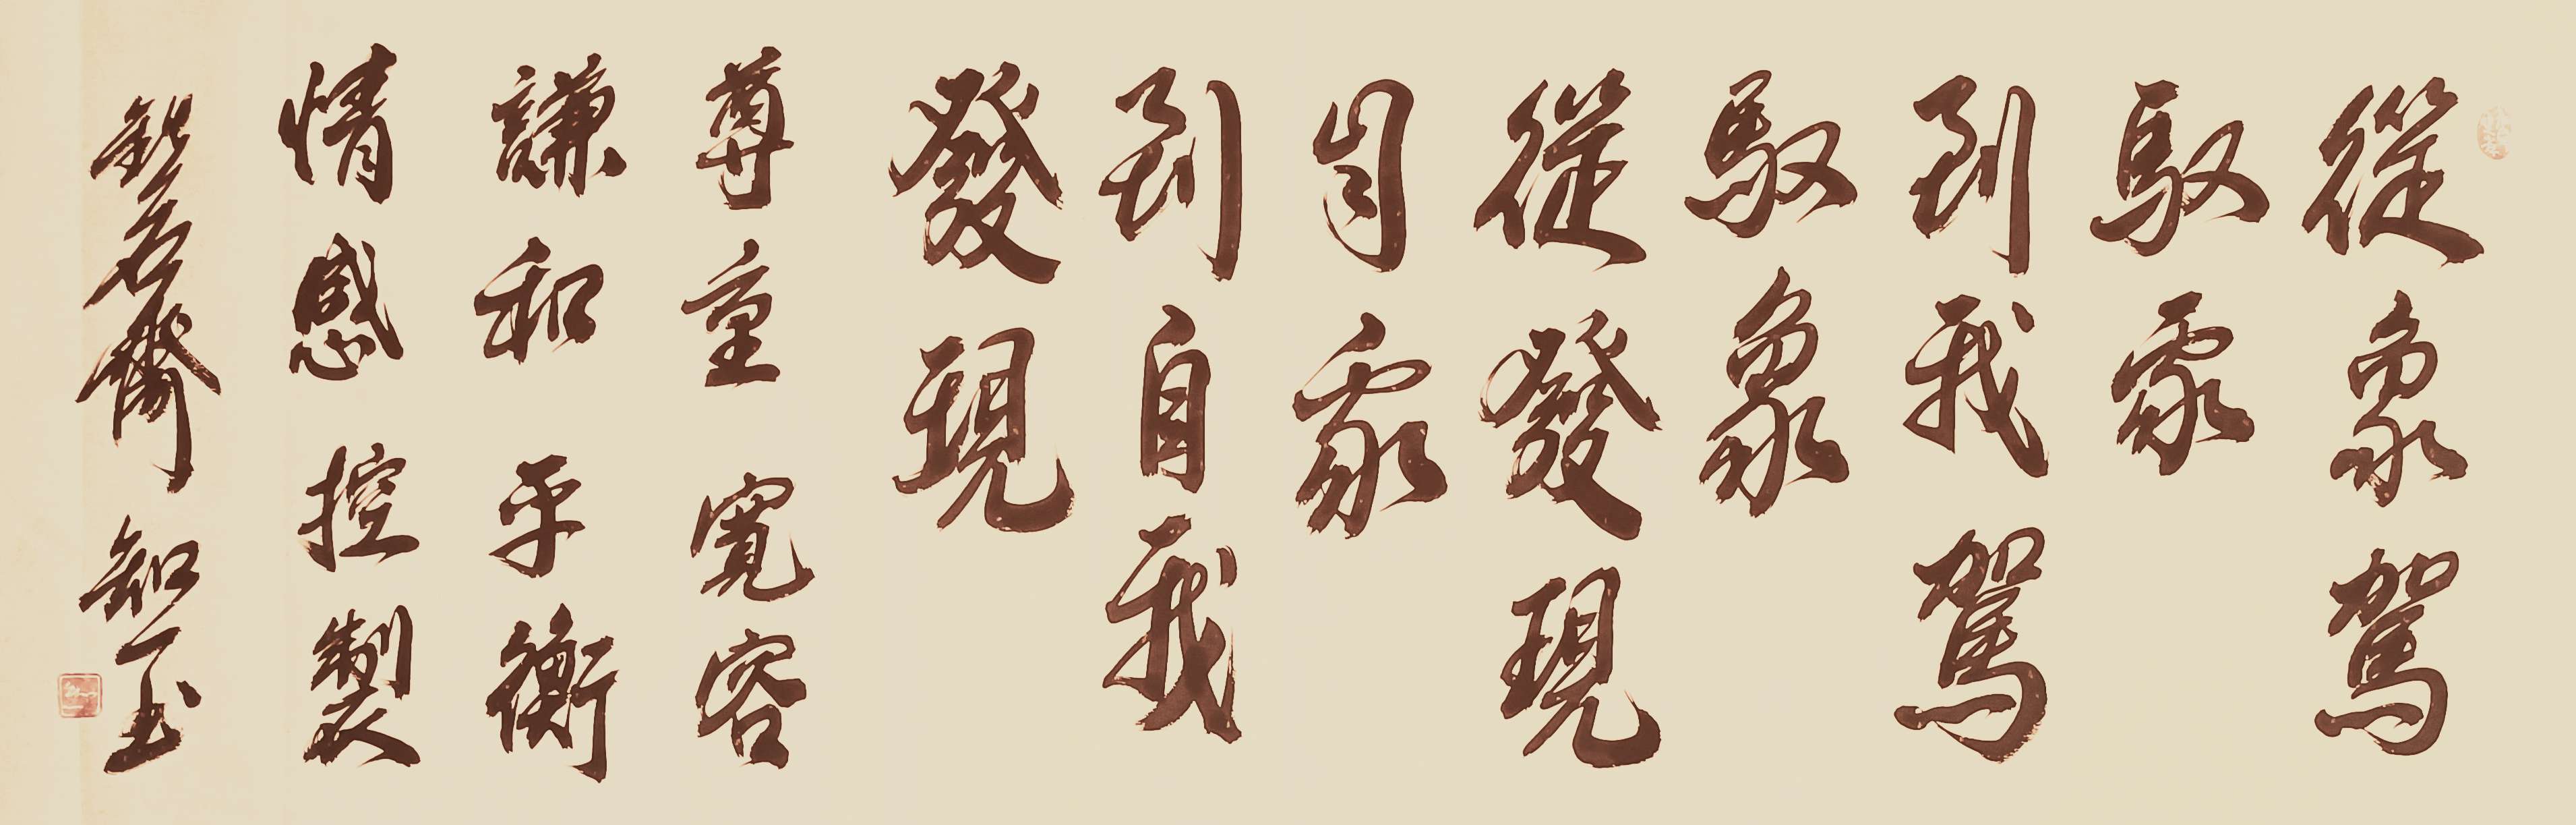 從象駕
馭家
到我駕
馭象
從發現
家
到自我
發現
尊重 寬容
謙和 平衡
情感 控製
齋 知一玉